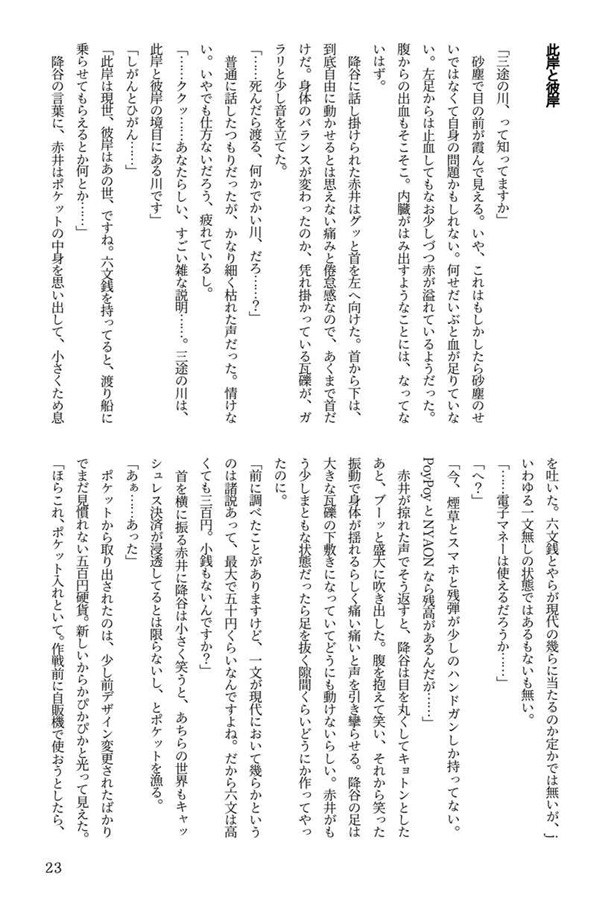 此岸と彼岸
「三途の川、って知ってますか」
砂塵で目の前が霞んで見える。いや、これはもしかしたら砂塵のせ
いではなくて自身の問題かもしれない。何せだいぶと血が足りていな
い。左足からは止血してもなお少しづつ赤が溢れているようだった。
腹からの出血もそこそこ。内臓がはみ出すようなことには、なってな
いはず。
降谷に話し掛けられた赤井はグッと首を左へ向けた。首から下は、
到底自由に動かせるとは思えない痛みと倦怠感なので、あくまで首だ
けだ。身体のバランスが変わったのか、凭れ掛かっている瓦礫が、ガ
ラリと少し音を立てた。
「……死んだら渡る、何かでかい川、だろ……？」
普通に話したつもりだったが、かなり細く枯れた声だった。情けな
い。いやでも仕方ないだろう、疲れているし。
「……ククッ……あなたらしい、すごい雑な説明……。三途の川は、
此岸と彼岸の境目にある川です」
「しがんとひがん……」
「此岸は現世、彼岸はあの世、ですね。六文銭を持ってると、渡り船に
乗らせてもらえるとか何とか……」
降谷の言葉に、赤井はポケットの中身を思い出して、小さくため息
を吐いた。六文銭とやらが現代の幾らに当たるのか定かでは無いが、
いわゆる一文無しの状態ではあるもない も無い。
「……電子マネーは使えるだろうか……」
「へ？」
「今、煙草とスマホと残弾が少しのハンドガンしか持ってない。
PoyPoyとNYAONなら残高があるんだが……」
赤井が掠れた声でそう返すと、降谷は目を丸くしてキョトンとした
あと、ブーッと盛大に吹き出した。腹を抱えて笑い、それから笑った
振動で身体が揺れるらしく痛い痛いと声を引き攣らせる。降谷の足は
大きな瓦礫の下敷きになっていてどうにも動けないらしい。赤井がも
う少しまともな状態だったら足を抜く隙間くらいどうにか作ってやっ
たのに。
「前に調べたことがありますけど、一文が現代において幾らかという
のは諸説あって、最大で五十円くらいなんですよね。だから六文は高
くても三百円。小銭もないんですか？」
首を横に振る赤井に降谷は小さく笑うと、あちらの世界もキャッ
シュレス決済が浸透してるとは限らないし、とポケットを漁る。
「あぁ……あった」
ポケットから取り出されたのは、少し前デザイン変更されたばかり
でまだ見慣れない五百円硬貨。新しいからかぴかぴかと光って見えた。
「ほらこれ、ポケット入れといて。作戦前に自販機で使おうとしたら、
23